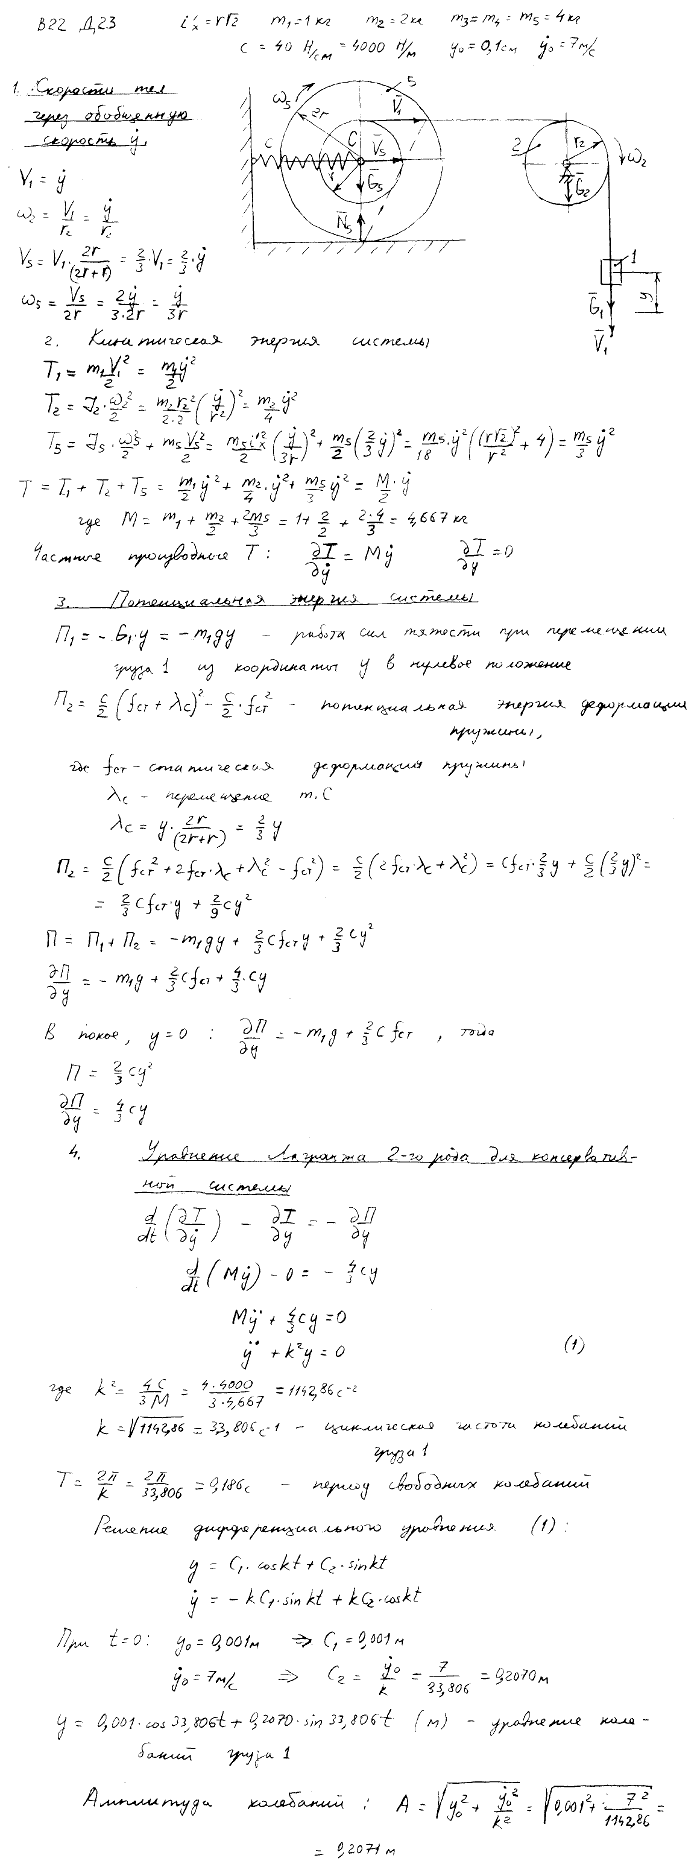 В22 Д23 i'ₓ = r√2 m₁=1кг m₂=2кг m₃=m₄=m₅=4кг
c = 40 Н/см = 4000 Н/м y₀=0,1см ẏ₀=7м/с
1. Скорости тел
через обобщенную
скорость ẏ,
V₁ = ẏ
ω₂ = V₁/r₂ = ẏ/r₂
V₅ = V₁·2r/(2r+r) = 2/3·V₁ = 2/3·ẏ
ω₅ = V₅/2r = 2ẏ/3·2r = ẏ/3r
ω₅ 2r 5 V̄₁ C c V̄₅ r Ḡ₅ N̄₅
2 r₂ ω₂ Ḡ₂ 1 Ḡ₁ V̄₁ y
2. Кинетическая энергия системы
T₁ = m₁V₁²/2 = m₁ẏ²/2
T₂ = J₂·ω₂²/2 = m₂r₂²/2·2 (ẏ/r₂)² = m₂/4 ẏ²
T₅ = J₅·ω₅²/2 + m₅V₅²/2 = m₅i'ₓ²/2 (ẏ/3r)² + m₅/2 (2/3 ẏ)² = m₅/18·ẏ² ((r√2)²/r² + 4) = m₅/3 ẏ²
T = T₁ + T₂ + T₅ = m₁/2 ẏ² + m₂/4·ẏ² + m₅/3 ẏ² = M/2·ẏ
где M = m₁ + m₂/2 + 2m₅/3 = 1 + 2/2 + 2·4/3 = 4,667 кг
Частные производные T: ∂T/∂ẏ = Mẏ ∂T/∂y = 0
3. Потенциальная энергия системы
П₁ = -G₁·y = -m₁gy – работа сил тяжести при перемещении
груза 1 из координаты y в нулевое положение
П₂ = c/2 (fст + λc)² - c/2·fст² - потенциальная энергия деформации
пружины,
где fст – статическая деформация пружины
λc – перемещение т.С
λc = y·2r/(2r+r) = 2/3 y
П₂ = c/2 (fст² + 2fст·λc + λc² - fст²) = c/2 (2fст·λc + λc²) = cfст·2/3 y + c/2 (2/3 y)² =
= 2/3 cfст·y + 2/9 cy²
П = П₁ + П₂ = -m₁gy + 2/3 cfст y + 2/3 cy²
∂П/∂y = -m₁g + 2/3 cfст + 4/3·cy
В покое, y=0 : ∂П/∂y = -m₁g + 2/3 c fст , тогда
П = 2/3 cy²
∂П/∂y = 4/3 cy
4. Уравнение Лагранжа 2-го рода для консератив-
ной системы
d/dt (∂T/∂ẏ) - ∂T/∂y = - ∂П/∂y
d/dt (Mẏ) - 0 = - 4/3 cy
Mÿ + 4/3 cy = 0
ÿ + k²y = 0 (1)
где k² = 4c/3M = 4·4000/3·4,667 = 1142,86 с⁻²
k = √1142,86 = 33,806 с⁻¹ – циклическая частота колебаний
груза 1
T = 2π/k = 2π/33,806 = 0,186 с – период свободных колебаний
Решение дифференциального уровнения (1):
y = C₁·cos kt + C₂·sin kt
ẏ = -kC₁·sin kt + kC₂·cos kt
При t=0: y₀ = 0,001м ⇒ C₁ = 0,001 м
ẏ₀ = 7м/с ⇒ C₂ = ẏ₀/k = 7/33,806 = 0,2070м
y = 0,001·cos 33,806t + 0,2070·sin 33,806t (м) – уравнение коле-
баний груза 1
Амплитуда колебаний: A = √(y₀² + ẏ₀²/k²) = √(0,001² + 7²/1142,86) =
= 0,2071 м